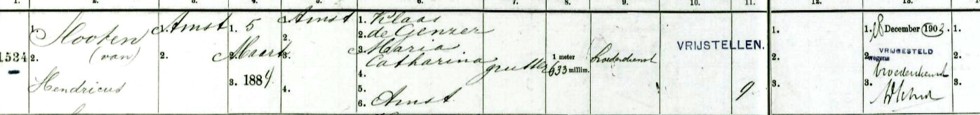 1534
1. Hooten
(van)
2.
Hendricus
Amst
2.
1. 5
2. Maart
3. 1884
Amst
2.
3.
4.
1. Klaas
2. de Genzer
3. Maria
Catharina
4.
5.
6. Amst
1 meter
633 millim.
broederdienst
VRIJSTELLEN.
9
1.
2.
3.
1. 28 December 1903
VRIJGESTELD
2. wegens
broederdienst
3.
1.
2.
3.